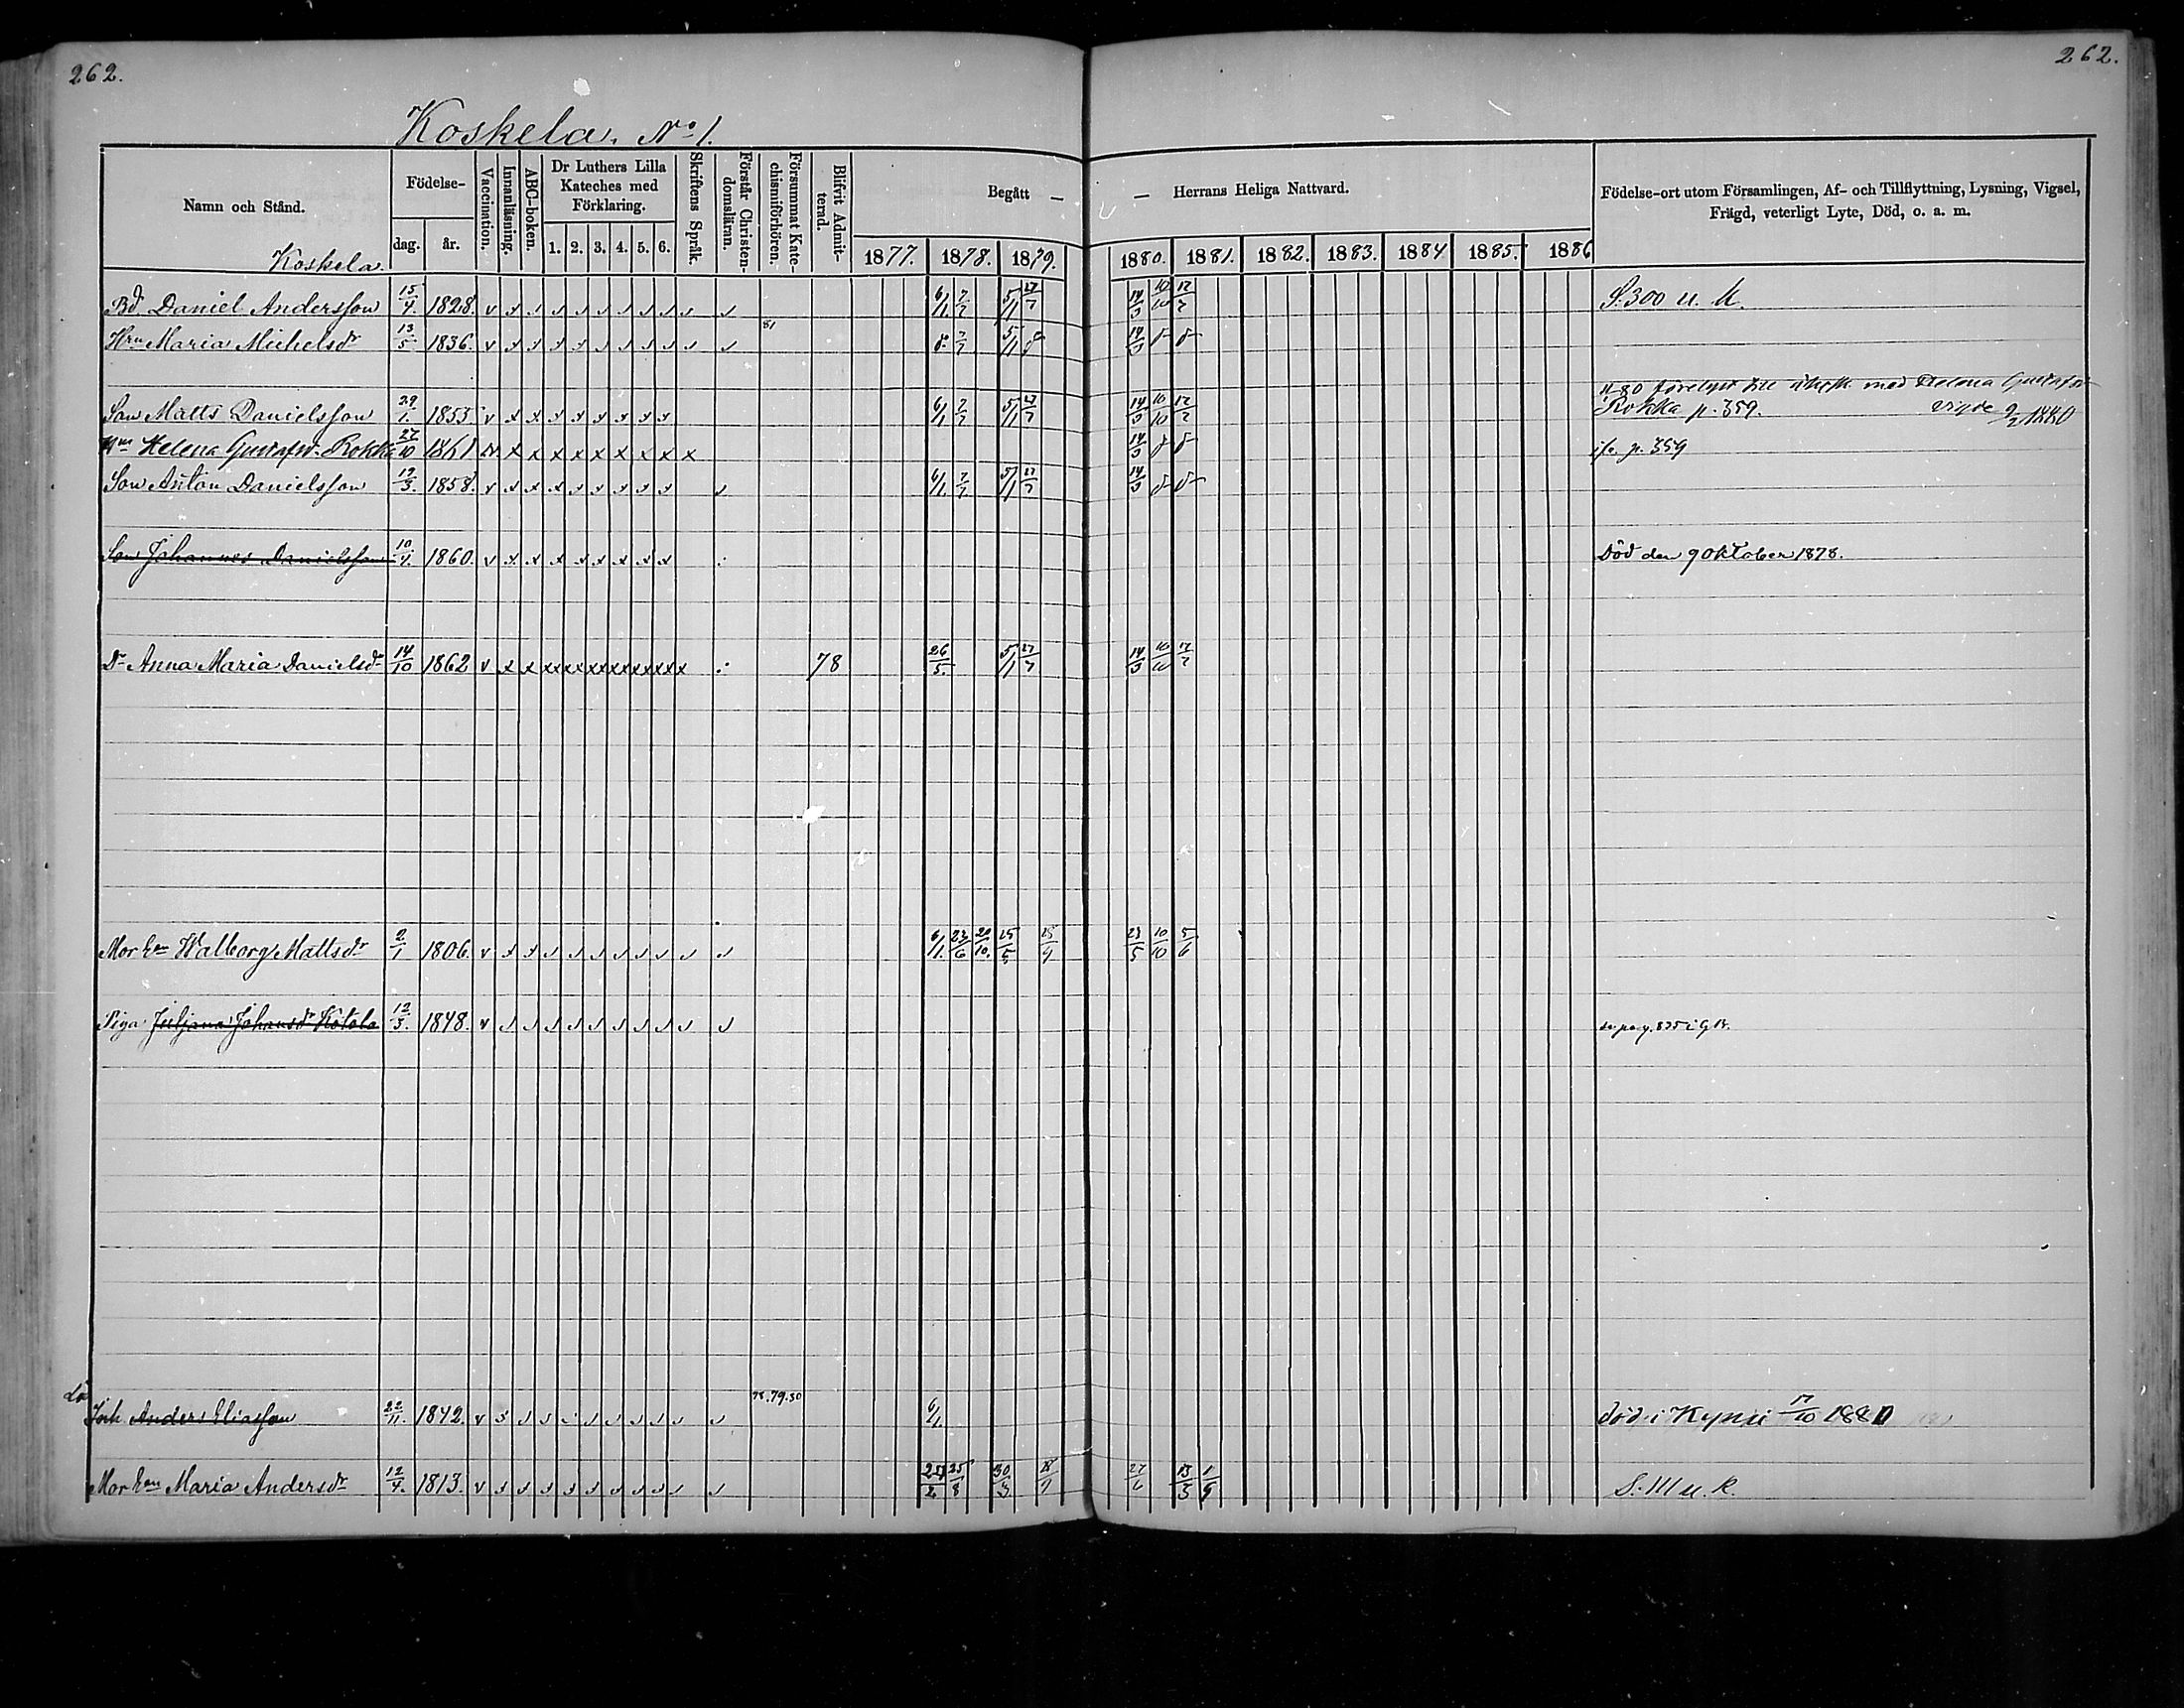 262.
262.
Koskela. No 1.
Namn och Stånd. Födelse- dag. år. Vaccination. Innanläsning. ABC-boken. Dr Luthers Lilla Kateches med Förklaring. 1. 2. 3. 4. 5. 6. Skriftens Språk. Förstår Christendomsläran. Försummat Katechismiförhören. Blifvit Admitterad. Begått — — Herrans Heliga Nattvard. Födelse-ort utom Församlingen, Af- och Tillflyttning, Lysning, Vigsel, Frägd, veterligt Lyte, Död, o. a. m.
1877. 1878. 1879. 1880. 1881. 1882. 1883. 1884 1885. 1886
Koskela.
Bd Daniel Andersson 15/4. 1828. 6/1 7/7 5/1 27/7 14/3 10/10 17/7 S. 300 u. K.
Hru Maria Michelsdr 13/5. 1836. 81 7/7 5/1 14/3
Son Matts Danielsson 29/1. 1853. 6/1 7/7 5/1 27/7 14/3 10/10 17/7 Rokka p. 359. vigde 2/2 1880
Helena Gustafsdr Rokka 27/10 1861 14/3 p. 359
Son Anton Danielsson 12/3. 1858. 6/1 7/7 5/1 27/7 14/3
Son Johannes Danielsson 10/4. 1860. Död den 9 oktober 1878.
Dr Anna Maria Danielsdr 14/10 1862 78 26/5. 5/1 27/7 14/3 10/10 17/7
Mor Enn Walborg Mattsdr 2/1 1806. 6/1. 23/6 20/10. 25/5 23/5 10/10 5/6
Piga Juljana Johansdr Kotola 12/3. 1848.
Inh Anders Eliasson 22/11. 1842. 78. 79. 80 6/1 död i Kymi 17/10 1880
Mor Enn Maria Andersdr 12/4. 1813. 25/8 30/3 13/3